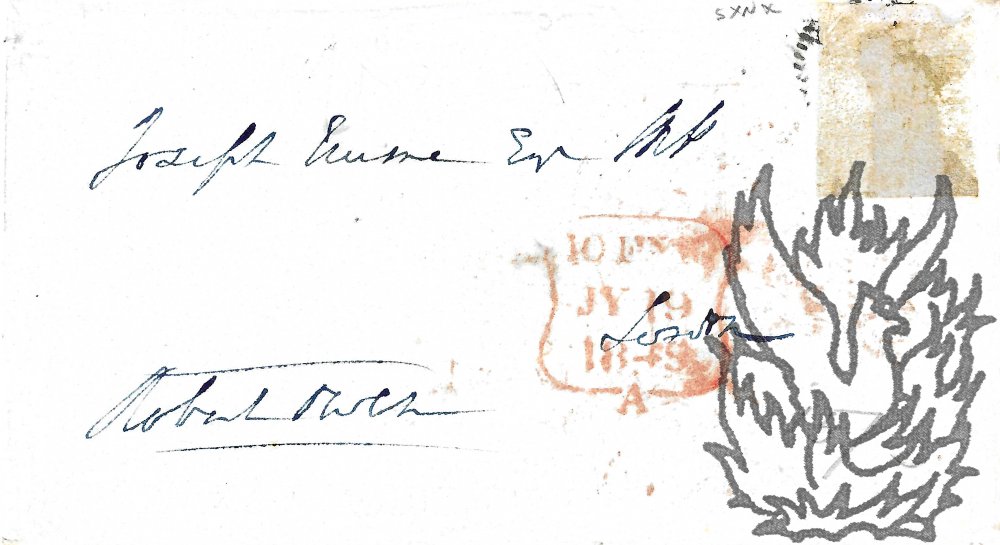 SXNX
Joseph Hume Esqr MP
10 FN 10
JY 19
1849
A
London
Robert Owen